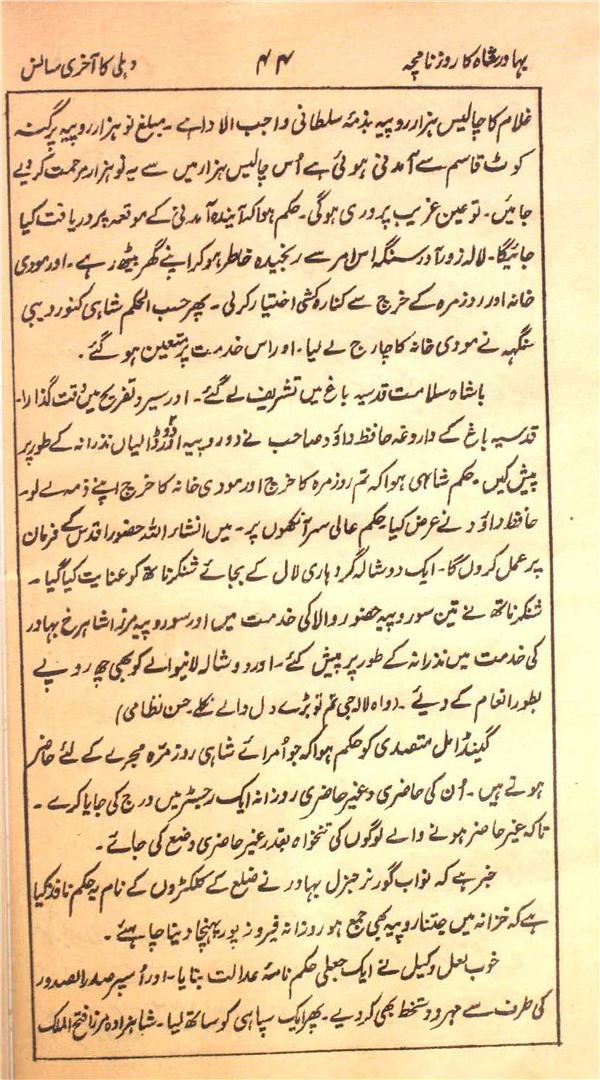 بہادر شاہ کا روزنامچہ ۴۴ دہلی کا آخری سانس
غلام کا چالیس ہزار روپیہ بذمۂ سلطانی واجب الادا ہے۔ مبلغ نو ہزار روپیہ پرگنہ
کوٹ قاسم سے آمدنی ہوئی ہے اُس چالیس ہزار میں سے یہ نو ہزار مرحمت کر دیے
جائیں۔ تو عین غریب پروری ہوگی۔ حکم ہوا کہ آیندہ آمدنی کے موقعہ پر دریافت کیا
جائیگا۔ لالہ زور آور سنگہ اس امر سے رنجیدہ خاطر ہو کر اپنے گھر بیٹھ رہے۔ اور مودی
خانہ اور روزمرہ کے خرچ سے کنارہ کشی اختیار کر لی۔ پھر حسب الحکم شاہی کنور دیبی
سنگہہ نے مودی خانہ کا چارج لے لیا۔ اور اس خدمت پر متعین ہو گئے۔
باشاہ سلامت قدسیہ باغ میں تشریف لے گئے۔ اور سیر و تفریح میں وقت گذارا۔
قدسیہ باغ کے داروغہ حافظ داؤد صاحب نے دو روپیہ اور دو ڈالیاں نذرانہ کے طور پر
پیش کیں۔ حکم شاہی ہوا کہ تم روزمرہ کا خرچ اور مودی خانہ کا خرچ اپنے ذمہ لے لو۔
حافظ داؤد نے عرض کیا حکم عالی سر آنکھوں پر۔ میں انشاء اللہ حضور اقدس کے فرمان
پر عمل کروں گا۔ ایک دوشالہ گردہاری لال کے بجائے شنکر ناتھ کو عنایت کیا گیا۔
شنکر ناتھ نے تین سو روپیہ حضور والا کی خدمت میں اور سو روپیہ مرزا شاہرخ بہادر
کی خدمت میں نذرانہ کے طور پر پیش کئے۔ اور دوشالہ لانیوالے کو بھی چھ روپے
بطور انعام کے دیئے۔ (واہ لالہ جی تم تو بڑے دل والے نکلے۔ حسن نظامی)
گینڈامل متصدی کو حکم ہوا کہ جو اُمرائے شاہی روزمرّہ مجرے کے لئے حاضر
ہوتے ہیں۔ اُن کی حاضری و غیر حاضری روزانہ ایک رجسٹر میں درج کی جایا کرے۔
تاکہ غیر حاضر ہونے والے لوگوں کی تنخواہ بقدر غیر حاضری وضع کی جائے۔
خبر ہے کہ نواب گورنر جنرل بہادر نے ضلع کے کلکٹروں کے نام یہ حکم نافذ کیا
ہے کہ خزانہ میں جتنا روپیہ بھی جمع ہو روزانہ فیروز پور پہنچا دینا چاہئے۔
خوب لعل وکیل نے ایک جعلی حکم نامۂ عدالت بنایا۔ اور اُسپر صدر الصدور
کی طرف سے مہر و دستخط بھی کر دیے۔ پھر ایک سپاہی کو ساتھ لیا۔ شاہزادہ مرزا فتح الملک